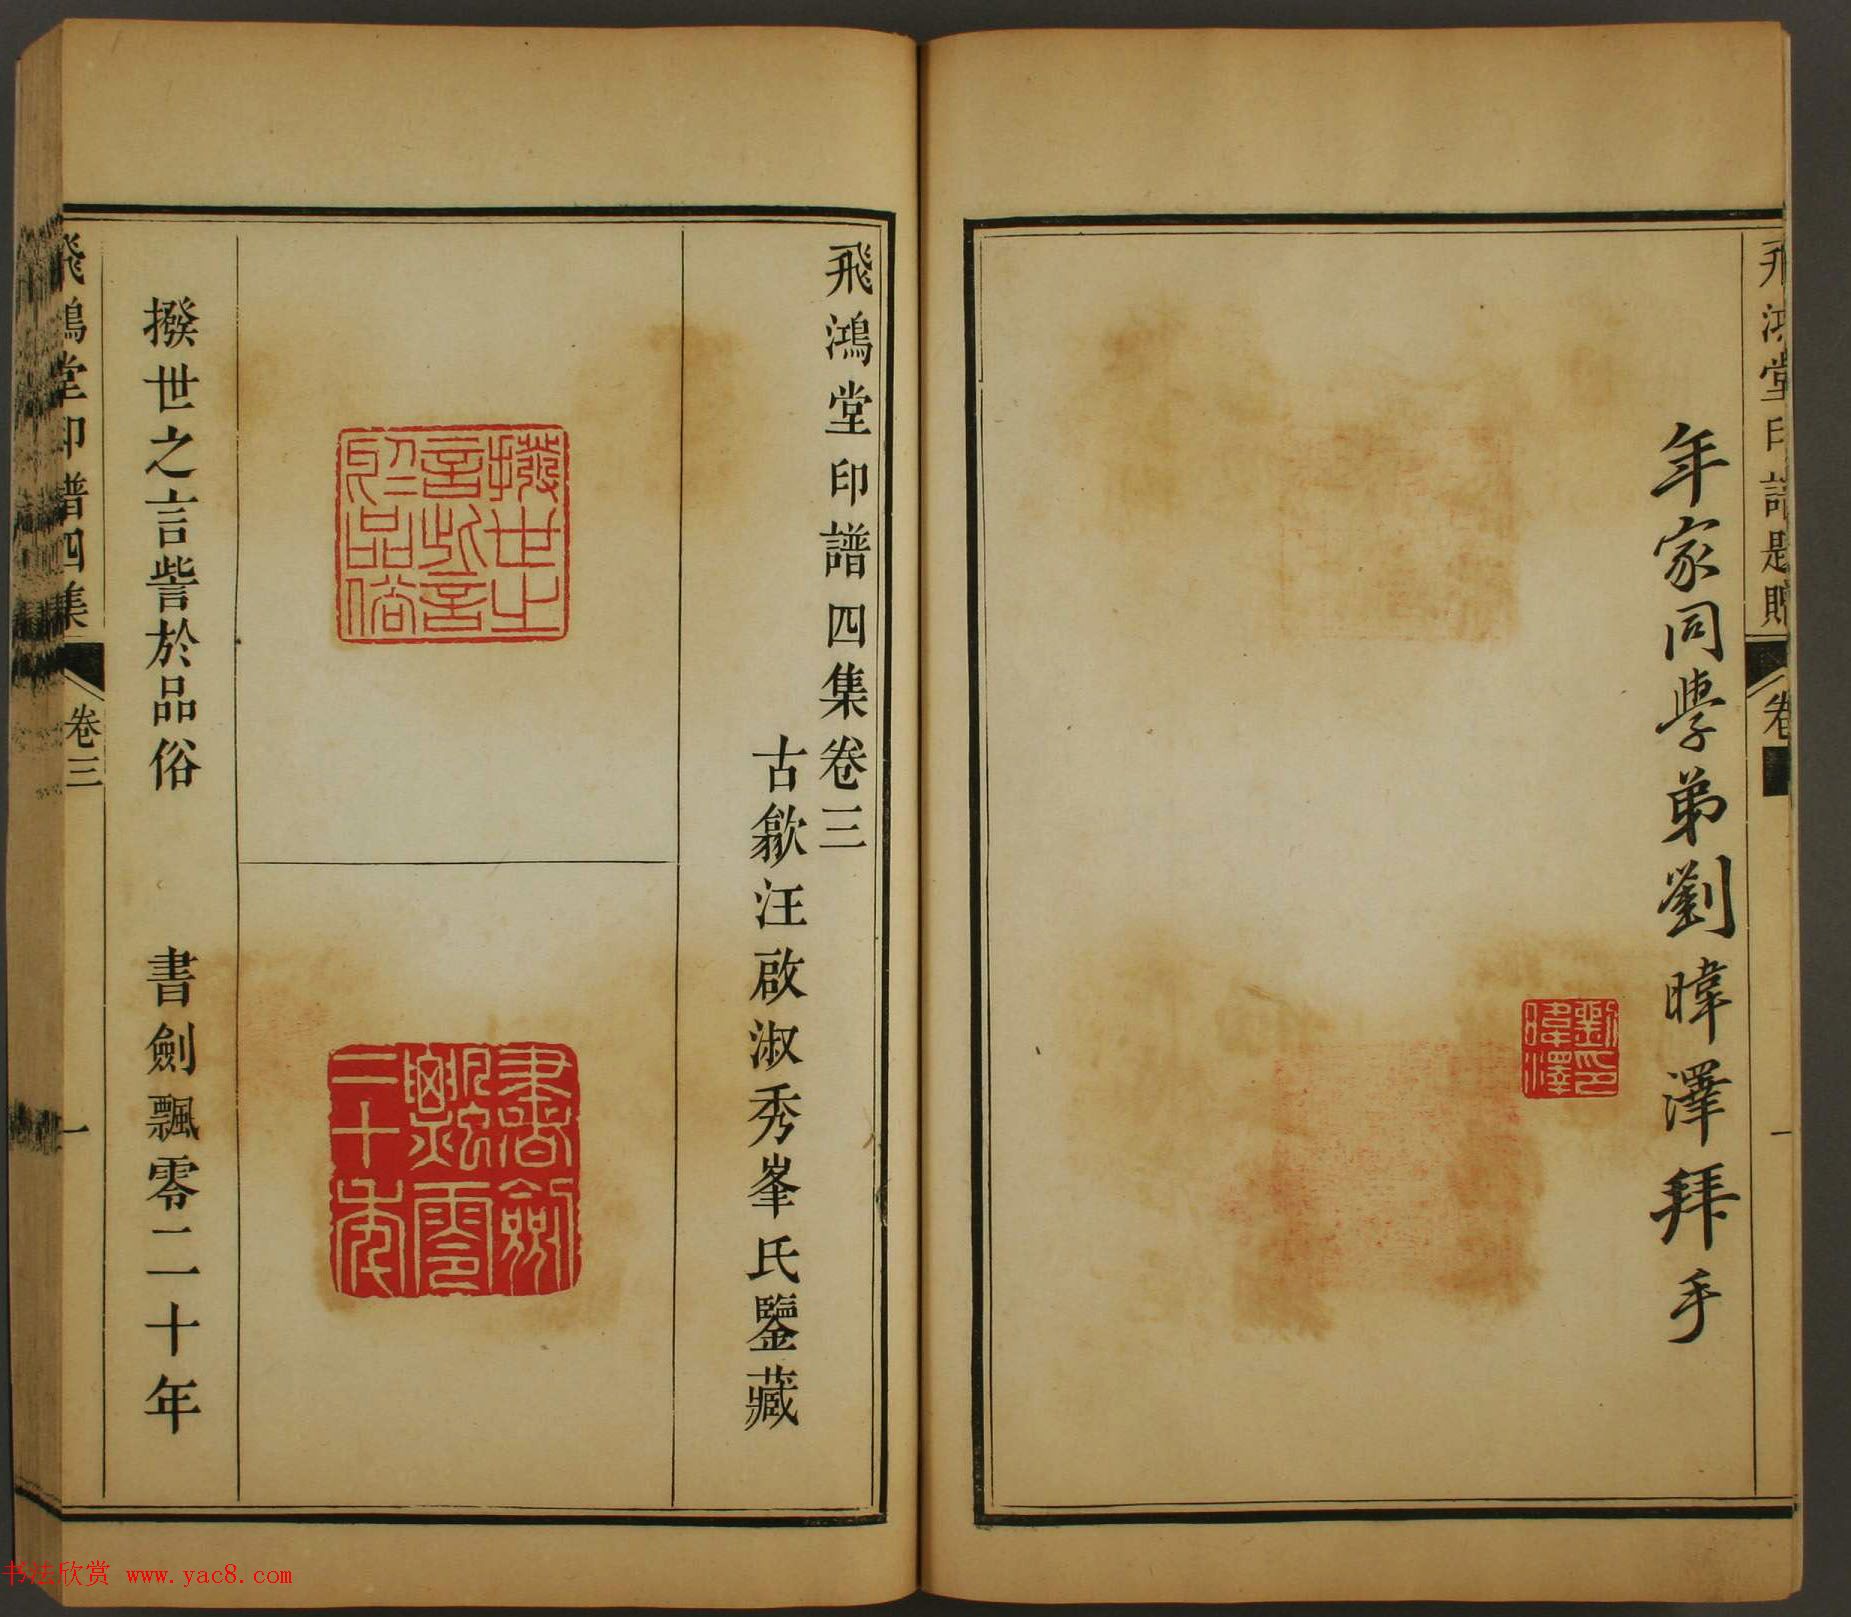 飛鴻堂印譜題贈
卷
一
年家同學弟劉暐澤拜手
劉印暐澤
飛鴻堂印譜四集卷三
古歙汪啟淑秀峯氏鑒藏
撥世之言訾於品俗
書劍飄零二十年
撥世之言訾於品俗
書劍飄零二十年
飛鴻堂印譜四集
卷三
一
书法欣赏 www.yac8.com